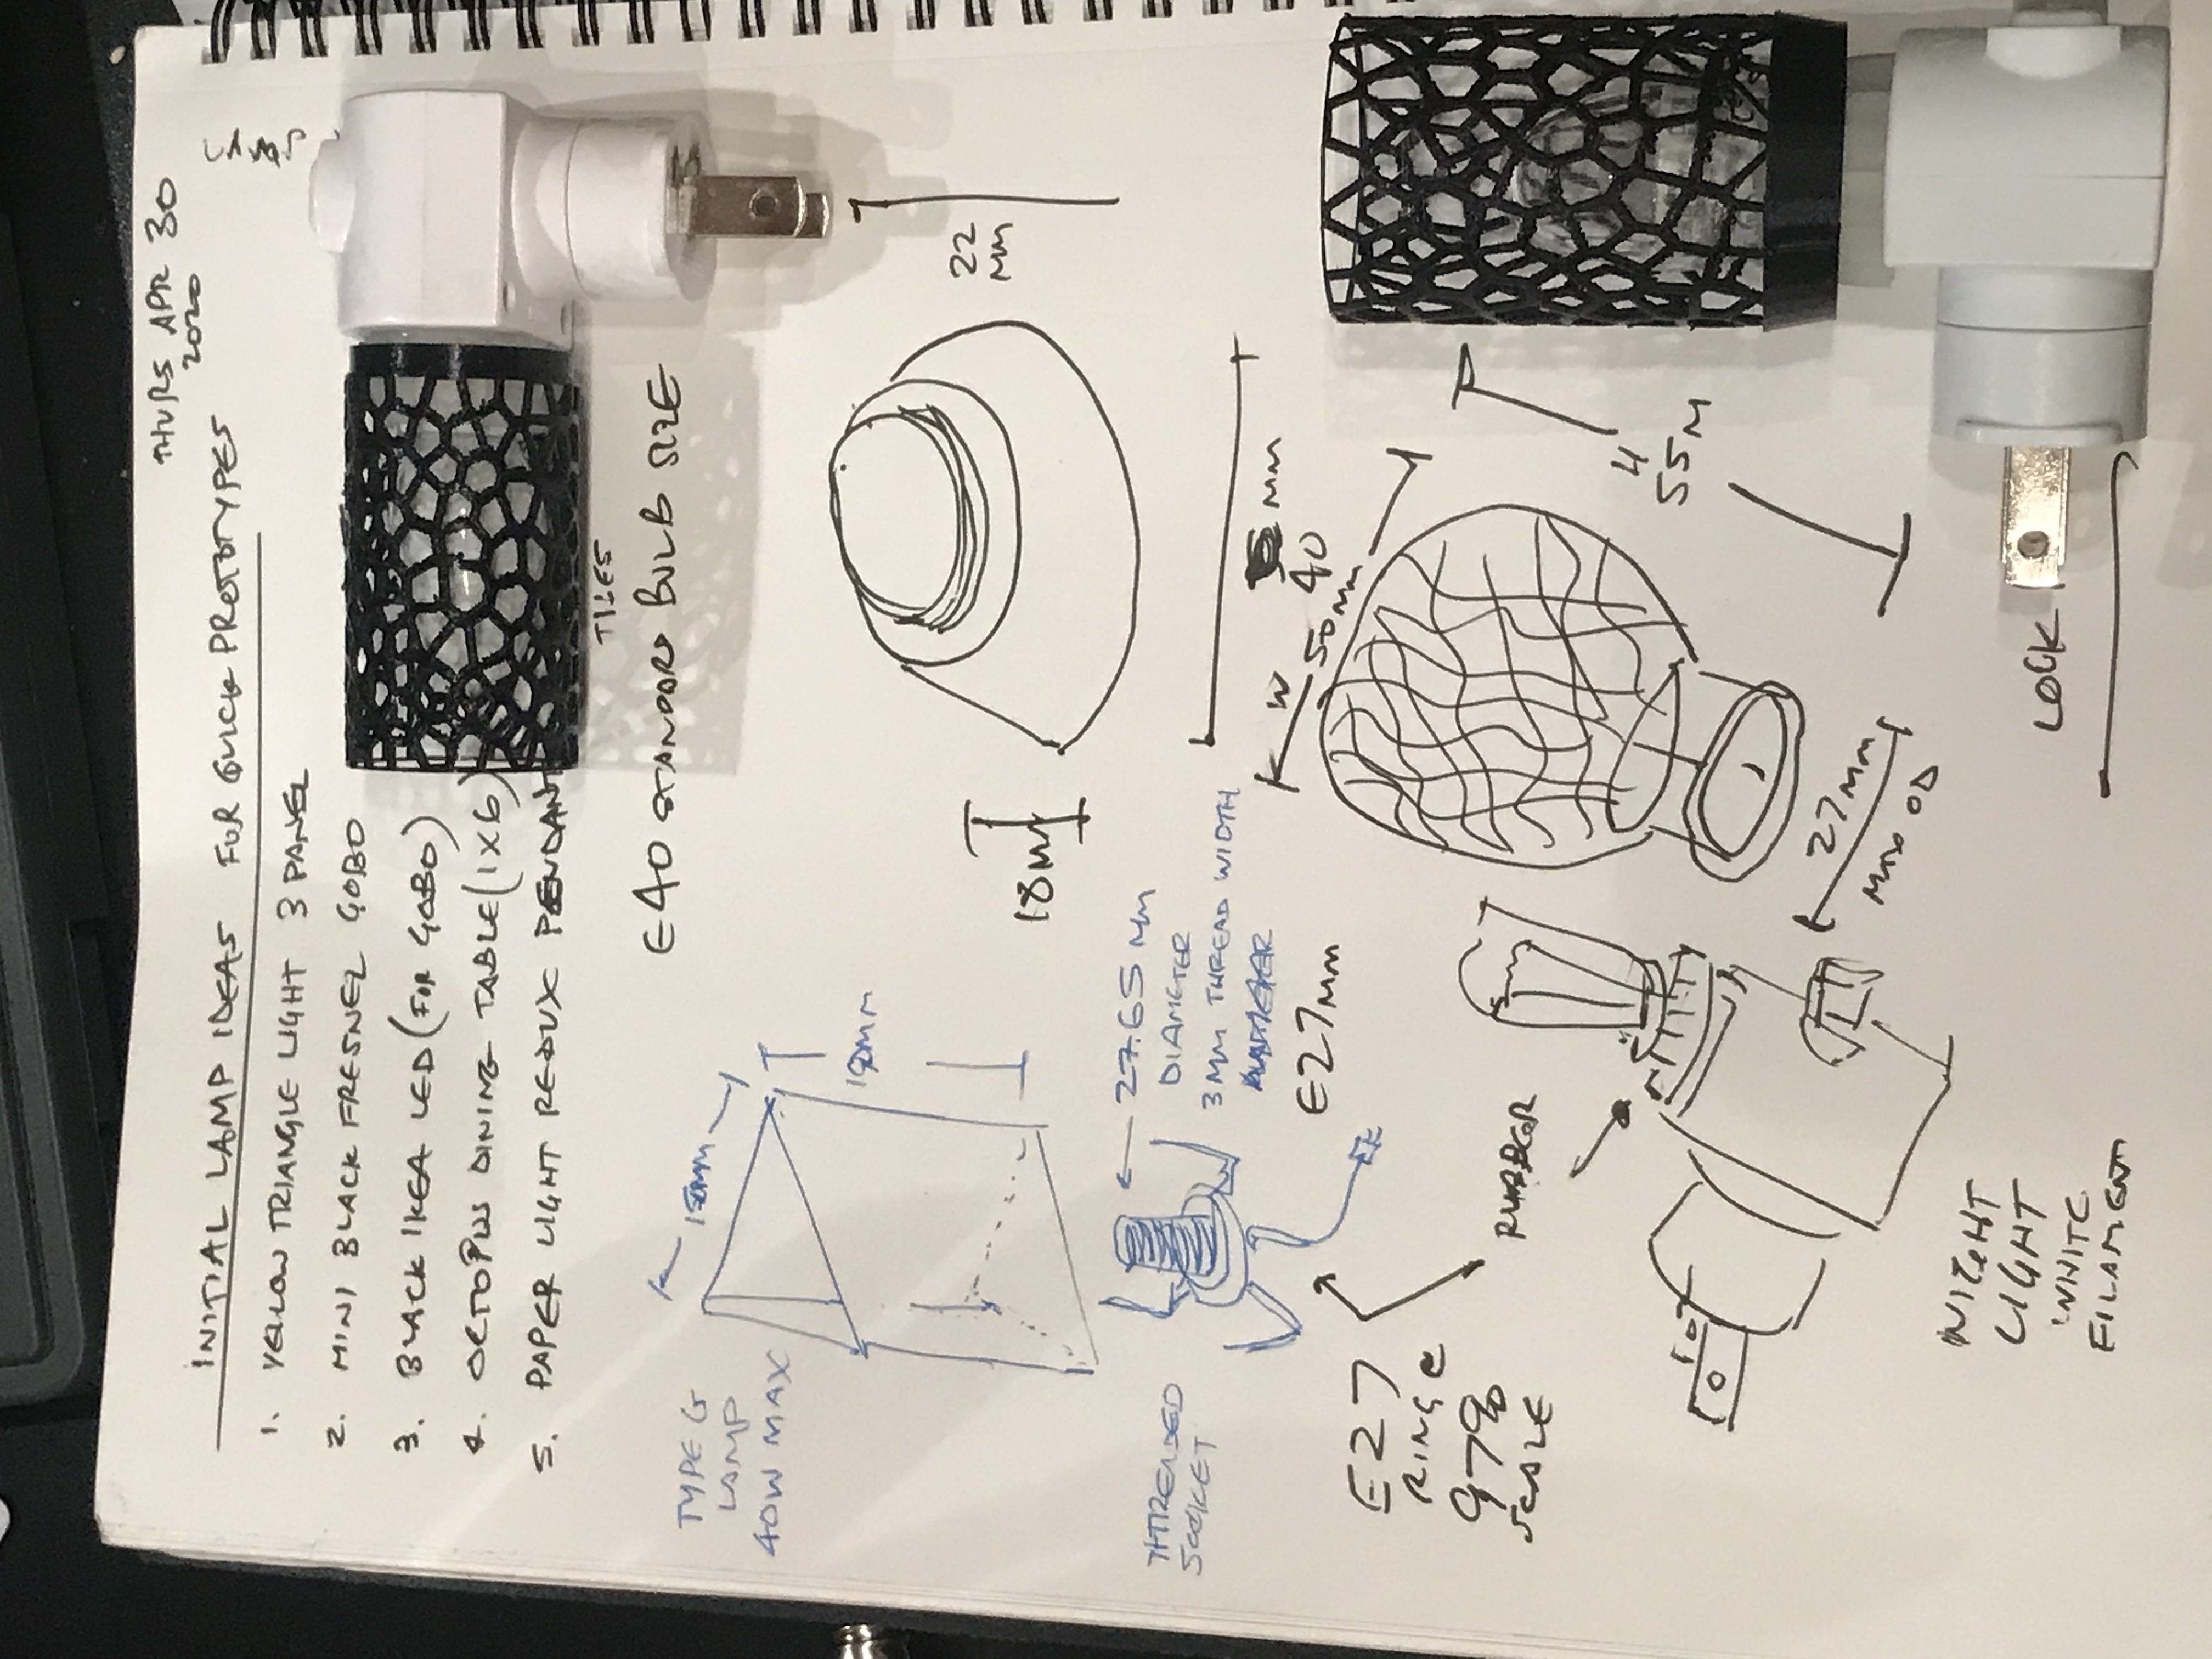 THURS APR 30
2020
INITIAL LAMP IDEAS FOR QUICK PROTOTYPES
1. YELLOW TRIANGLE LIGHT 3 PANEL
2. MINI BLACK FRESNEL GOBO
3. BLACK IKEA LED (FOR GOBO)
4. OCTOPUS DINING TABLE (1X6)
5. PAPER LIGHT REDUX PENDANT
TILES
E40 STANDARD BULB SIZE
TYPE G
LAMP
40W MAX
150MM
190MM
22
MM
18MM
THTREADED
SOCKET
27.65 MM
DIAMETER
3MM THREAD WIDTH
MM
40
E27MM
W
50MM
E27
RING @
97%
SCALE
RUBBER
H
55M
27MM
MAX OD
NIGHT
LIGHT
WHITE
FILAMENT
LOCK